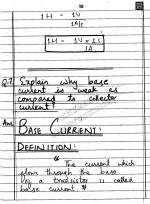 10
1H = 1V
1A/s
1H = 1V × 1s
1A
Q.7 Explain why base
current is weak as
compared to collector
current?
Ans BASE CURRENT:
DEFINITION:
" The current which
flows through the base
of a transistor is called
base current. "